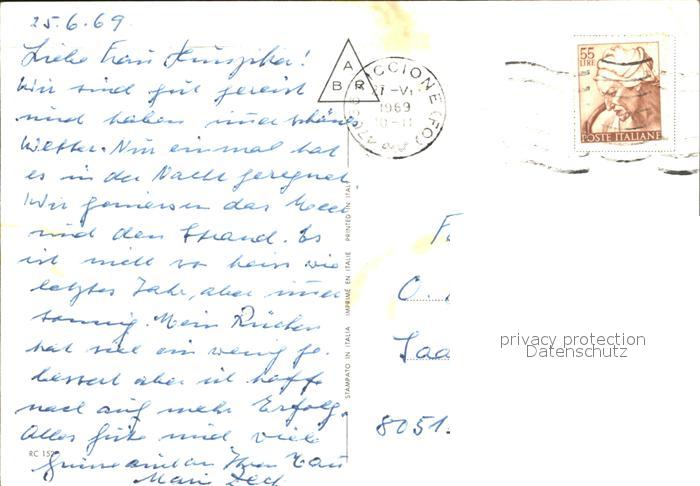 25.6.69.
Liebe Frau
Wir sind gut gereist
und haben immer schönes
Wetter. Nur einmal hat
es in der Nacht geregnet.
Wir geniessen das Meer
und den Strand. Es
ist nicht so heiss wie
letztes Jahr, aber immer
sonnig. Mein Rücken
hat sich ein wenig ge-
bessert aber ich hoffe
noch auf mehr Erfolg.
Alles Gute und viele
Grüsse an Ihren
RC 152
STAMPATO IN ITALIA IMPRIMÉ EN ITALIE PRINTED IN ITALY
A
B R
CCIONE (FO)
-VI
1969
55
LIRE
POSTE ITALIANE
F
O.
Saa
8051.
privacy protection
Datenschutz